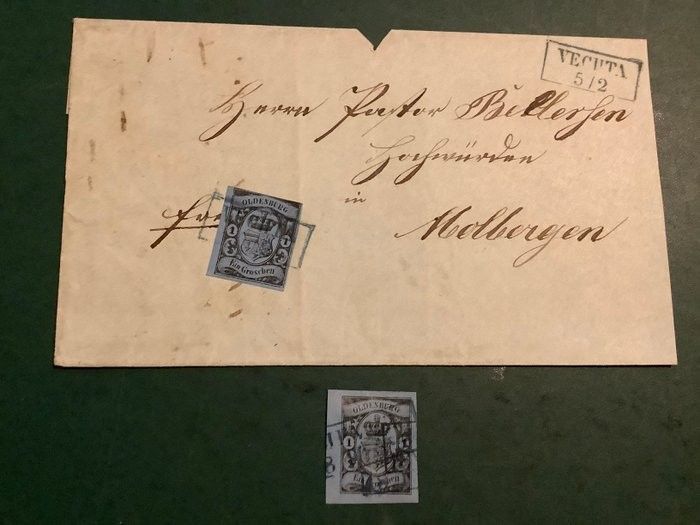 VECHTA
5/2
Herrn Pastor
Hochwürden
in
Molbergen
OLDENBURG
1 1
Ein Groschen
OLDENBURG
1 1
Ein Groschen